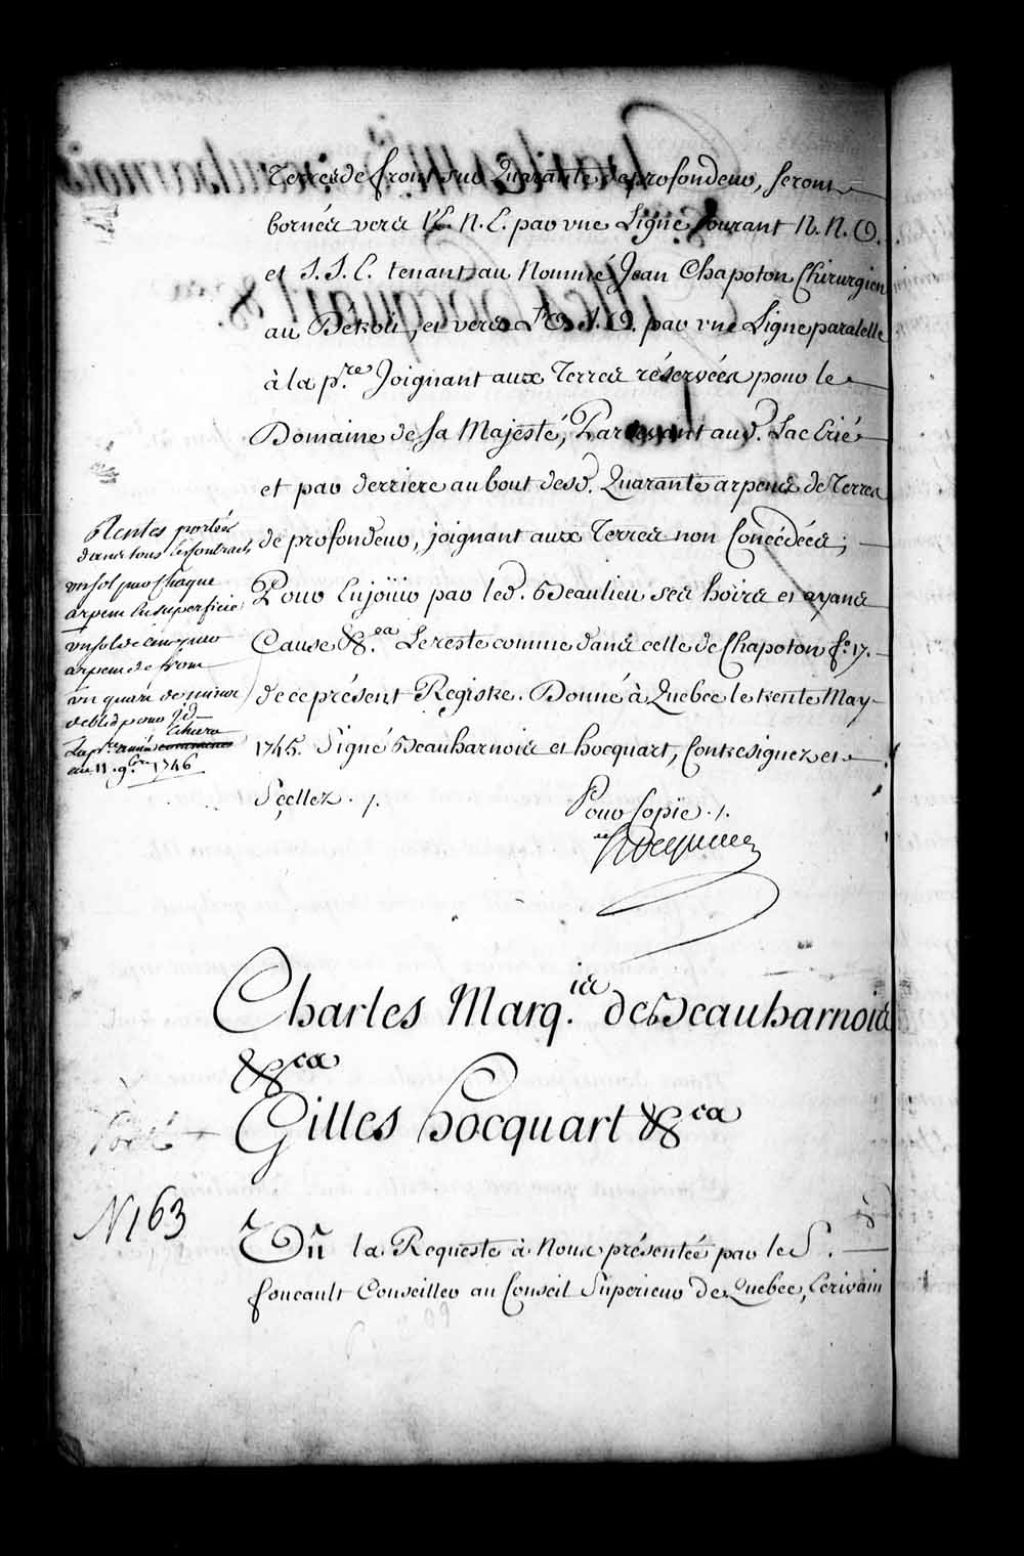 Terres de front sur Quarante de profondeur, seront
bornées vers l'E. N. E. par une Ligne Courant N. N. O.
et S. S. E. tenant au Nommé Jean Chapoton Chirurgien
au Detroit, et vers l'O. S. O. par une Ligne paralelle
à la p.re Joignant aux Terres réservées pour le
Domaine de sa Majesté, Par devant aud. Lac Erié
et par derriere au bout desd. Quarante arpens de Terres
de profondeur, joignant aux Terres non Concédées;
Pour En joüir par led. Beaulieu ses hoirs et ayans
Cause &.ca Le reste comme dans celle de Chapoton f.o 17.
de ce présent Registre. Donné à Quebec le trente May
1745. Signé Beauharnois et hocquart, Contresignez et
Sçellez ./.
Pour Copie ./.
Hocquart
Rentes portées
dans tous les Contrats
un sol pour Chaque
arpent En superficie
un sol de cens pour
arpent de front
un quart de minot
de bled pour
au 11 9.bre 1746
Charles Marq.is de Beauharnois
&ca
Gilles hocquart &ca
N 163
Vû la Requeste à Nous présentée par le S.
foucault Conseiller au Conseil Superieur de Quebec, Ecrivain